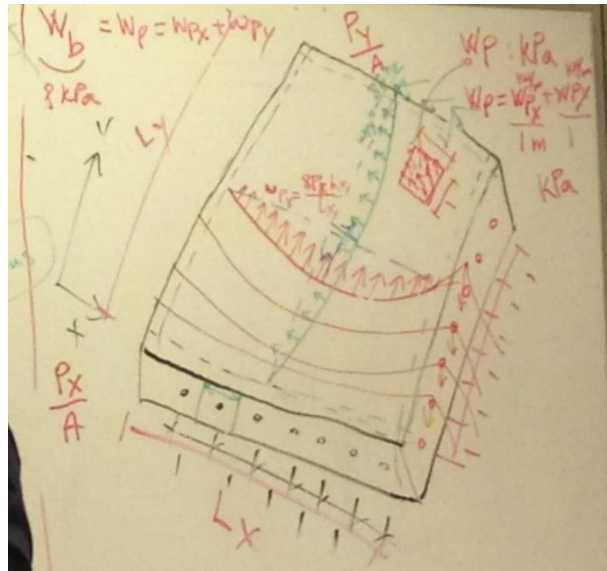 W_b = W_P = W_PX + W_PY
8 kPa
P_Y/A
W_P : kPa
W_P = W_PX/1m + W_PY/1
kPa
L_Y
Y
X
P_X/A
L_X